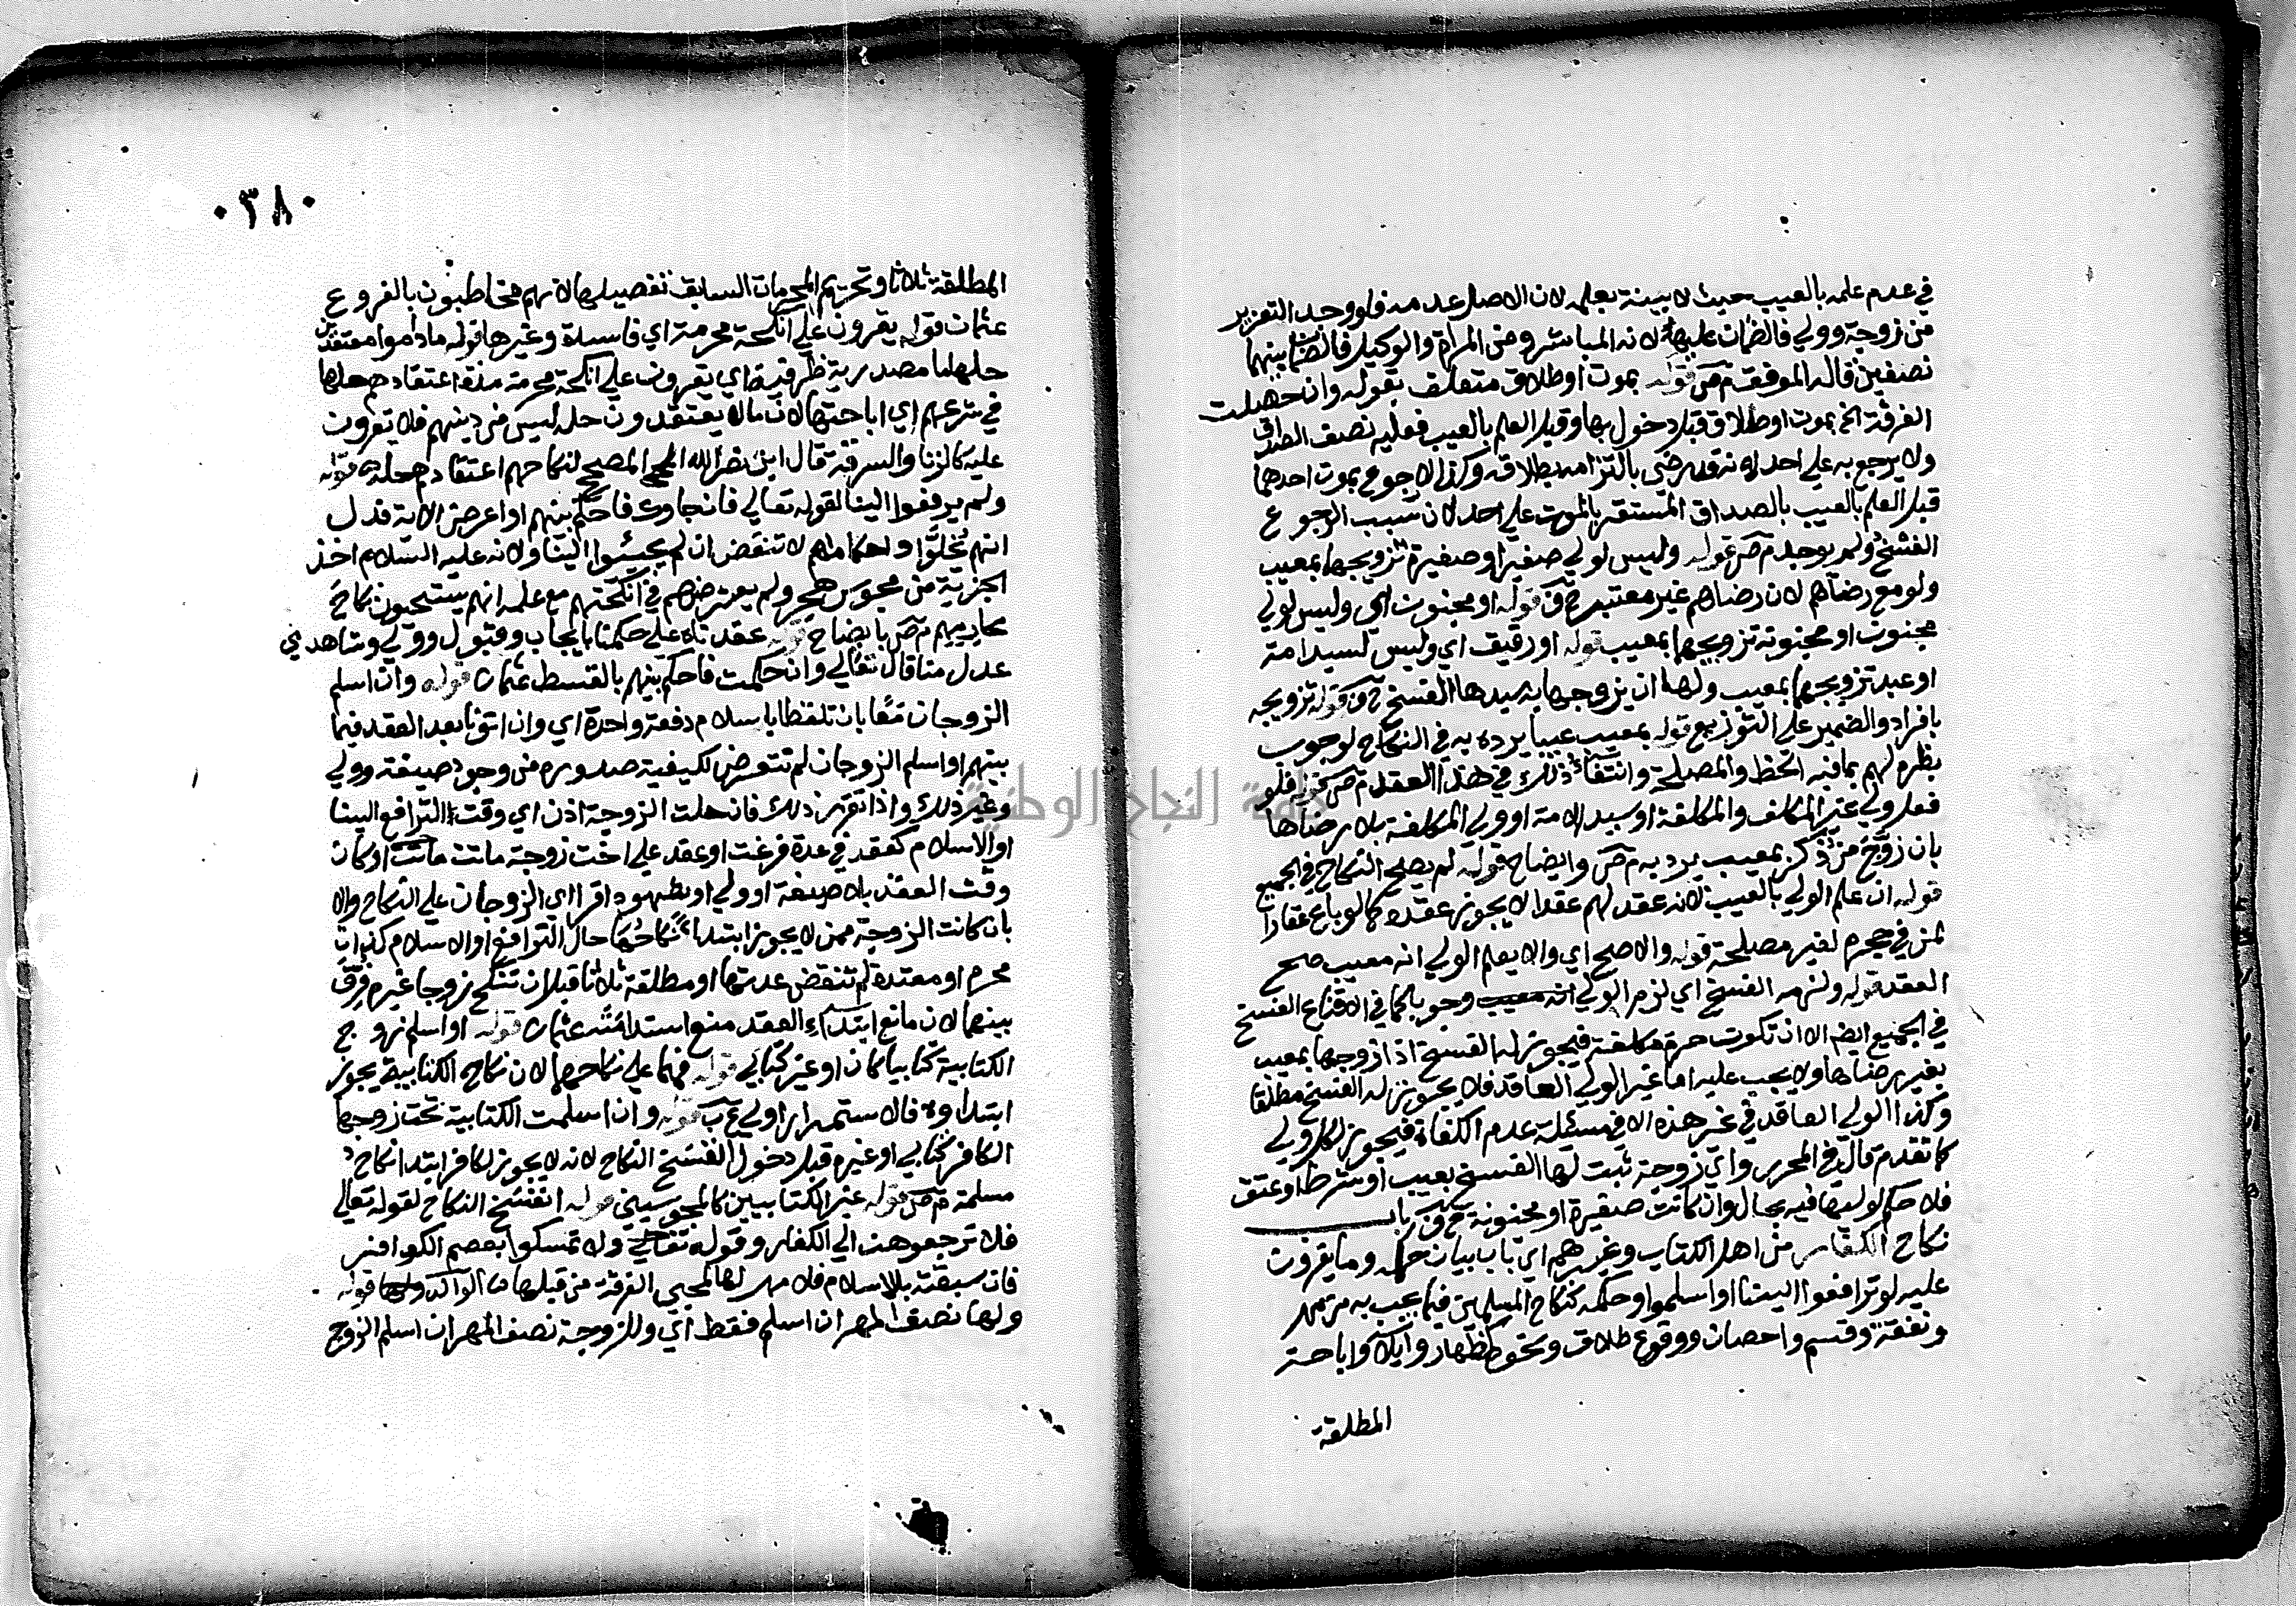 في عدم علمه بالعيب حيث لا بينة بعلمه لان الاصل عدمه فلو وجد التغرير
من زوجة وولي فالضمان عليها لانه المباشر ومن المراة والوكيل فالضمان بينهما
نصفين قاله الموفق م ص قوله بموت او طلاق متعلق بقوله وان حصلت
الفرقة الخ بموت او طلاق قبل دخول بها وقبل العلم بالعيب فعليه نصف الصداق
ولا يرجع به على احد لانه قد رضي بالتزامه بطلاقه وكذا لا رجوع بموت احدهما
قبل العلم بالعيب بالصداق المستقر بالموت على احد لان سبب الرجوع
الفسخ ولم يوجد م ص قوله وليس لولي صغير او صغيرة تزويجهما بمعيب
ولو مع رضاهم لان رضاهم غير معتبر قوله او مجنون اي وليس لولي
مجنون او مجنونة تزويجهما بمعيب قوله او رقيق اي وليس لسيد امة
او عبد تزويجهما بمعيب ولها ان تزوجها به سيدها الفسخ قوله تزويجه
بافراد والضمير على التوزيع قوله بمعيب عيبا يرده به في النكاح لوجوب
نظره لهم بما فيه الحظ والمصلحة وانتفاء ذلك في هذا العقد م ص قوله فلو
فعل ولي غير المكلف والمكلفة او سيد الامة او ولي المكلفة بلا رضاها
بان زوج من ذكر بمعيب يرد به م ص وايضاح قوله لم يصح النكاح في الجميع
قوله ان علم الولي بالعيب لانه عقد لهم عقدا لا يجوز عقده كما لو باع عقارا
لمن في حجره لغير مصلحة قوله والا صح اي والا يعلم الولي انه معيب صح
العقد قوله ولزمه الفسخ اي لزم الولي انه معيب وجوبا كما في الاقناع الفسخ
في الجميع الا ان تكون حرة مكلفة فيجوز له الفسخ اذا زوجها بمعيب
بغير رضاها ولا يجب عليه اما غير الولي العاقد فلا يجوز له الفسخ مطلقا
وكذا الولي العاقد في غير هذه الا في مسئلة عدم الكفاة فيجوز لكل ولي
كما تقدم قال في المحرر واي زوجة ثبت لها الفسخ بعيب او شرط او عتق
فلا حكم لوليها فيه بحال وان كانت صغيرة او مجنونة باب
نكاح الكفار من اهل الكتاب وغيرهم اي باب بيان حكمه وما يقرون
عليه لو ترافعوا الينا او اسلموا وحكمه كنكاح المسلمين فيما يجب به من مهر
ونفقة وقسم واحصان ووقوع طلاق ونحو كظهار وايلا واباحة
المطلقة
٠٣٨٠
المطلقة ثلاثا وتحريم المحرمات السابق تفصيلها لانهم مخاطبون بالفروع
عثمان قوله يقرون على انكحة محرمة اي فاسدة وغيرها قوله ماداموا معتقدين
حلها ما مصدرية ظرفية اي يقرون على انكحة محرمة مدة اعتقادهم حلها
في شرعهم اي اباحتها لان ما لا يعتقدون حله ليس من دينهم فلا يقرون
عليه كالزنا والسرقة قال ابن نصر الله المصحح لنكاحهم اعتقادهم حله قوله
ولم يرفعوا الينا لقوله تعالى فان جاوك فاحكم بينهم او اعرض الاية فدل
انهم يخلوا واحكامهم لا تنقض ان لم يجيئوا الينا ولانه عليه السلام اخذ
الجزية من مجوس هجر ولم يعترضهم في انكحتهم مع علمه انهم يستبيحون نكاح
محارمهم م ص بايضاح قوله عقدناه على حكمنا بايجاب وقبول وولي وشاهدي
عدل منا قال تعالى وان حكمت فاحكم بينهم بالقسط عثمان قوله وان اسلم
الزوجان معا بان تلفظا باسلام دفعة واحدة اي وان اتونا بعد العقد فيما
بينهم او اسلم الزوجان لم نتعرض لكيفية صدوره من وجود صيغة وولي
وغير ذلك واذا تقرر ذلك فان حلت الزوجة اذن اي وقت الترافع الينا
او الاسلام كعقد في عدة فرغت او عقد على اخت زوجة ماتت او كان
وقت العقد بلا صيغة او ولي او شهود اقرا اي الزوجان على النكاح والا
بان كانت الزوجة ممن لا يجوز ابتداء نكاحها حال الترافع او الاسلام كذات
محرم او معتدة لم تنقض عدتها او مطلقة ثلاثا قبل ان تنكح زوجا غيره فرق
بينهما لان مانع ابتداء العقد منع استدامته عثمان قوله او اسلم زوج
الكتابية كتابيا كان او غير كتابي قوله فهما على نكاحهما لان نكاح الكتابية يجوز
ابتداوه فالاستمرار اولى قوله وان اسلمت الكتابية تحت زوجها
الكافر كتابي او غيره قبل دخول انفسخ النكاح لانه لا يجوز لكافر ابتدا نكاح
مسلمة م ص قوله غير الكتابيين كالمجوسيين قوله انفسخ النكاح لقوله تعالى
فلا ترجعوهن الى الكفار وقوله تعالى ولا تمسكوا بعصم الكوافر
فان سبقته بالاسلام فلا مهر لها لمجي الفرقة من قبلها قوله
ولها نصف المهر ان اسلم فقط اي وللزوجة نصف المهر ان اسلم الزوج
جامعة النجاح الوطنية